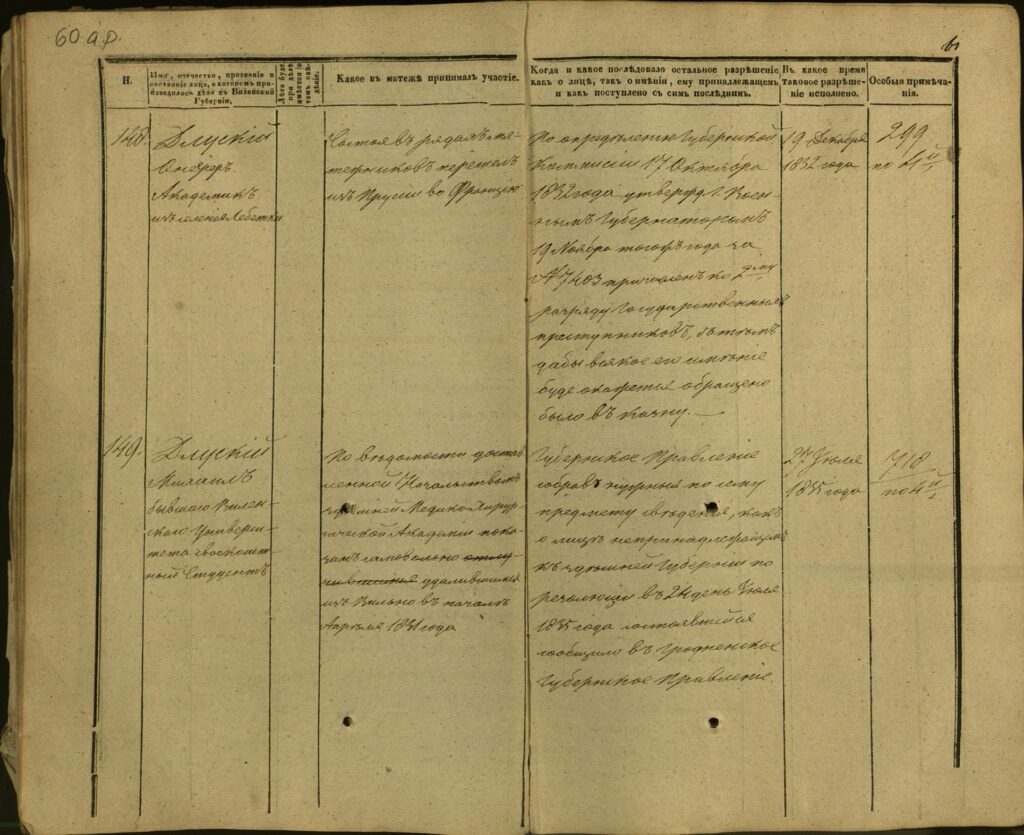 60 a.p.
61
Н.
Имя, отчество, прозвание и
состояние лица, о которомъ про-
изводилось дѣло въ Виленской
Губерніи.
Лѣта буде
при дѣлѣ
имѣется о
томъ свѣ-
дѣніе.
Какое въ мятежѣ принималъ участіе.
Когда и какое послѣдовало остальное разрѣшеніе
какъ о лицѣ, такъ о имѣніи, ему принадлежащемъ
и какъ поступлено съ симъ послѣднимъ.
Въ какое время
таковое разрѣше-
ніе исполнено.
Особыя примѣча-
нія.
148.
Длускій
Академикъ
Состоя въ рядахъ мя-
тежниковъ перешелъ
изъ Прусіи во Францію
По опредѣленію Губернской
Коммисіи 17 Октября
1832 года утвержд. Г. Воен-
нымъ Губернаторомъ
19 Ноября тогожъ года за
№ 7403 причисленъ ко 2му
разряду Государственныхъ
преступниковъ, съ тѣмъ
дабы всякое его имѣніе
буде окажется обращено
было въ казну.
19 Декабря
1832 года
299
по 4й
149.
Длускій
Михаилъ
бывшаго Вилен-
скаго Универси-
тета своекошт-
ный Студентъ
По вѣдомости достав-
ленной Начальствомъ
здѣшней Медико-Хирур-
гической Академіи пока-
занъ самовольно отлу-
чившимся удалившимся
изъ Вильно въ началѣ
Апрѣля 1831 года
Губернское Правленіе
собравъ нужныя по сему
предмету свѣденія, какъ
о лицѣ непринадлежащемъ
къ здѣшней Губерніи по
резолюціи въ 24 день Іюля
1835 года состоявшейся
сообщило въ Гродненское
Губернское Правленіе.
27 Іюля
1835 года
718
по 4й